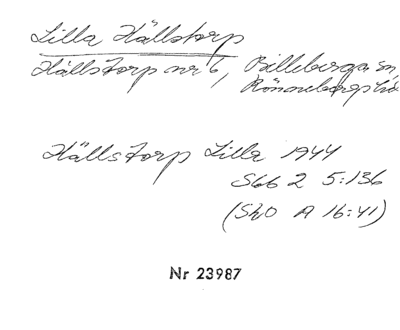 Lilla Hällstorp
Hällstorp nr 6, Billeberga sn
Rönnebergs hd
Hällstorp Lilla 1944
S66 2 5:136
(SkO A 16:41)
Nr 23987